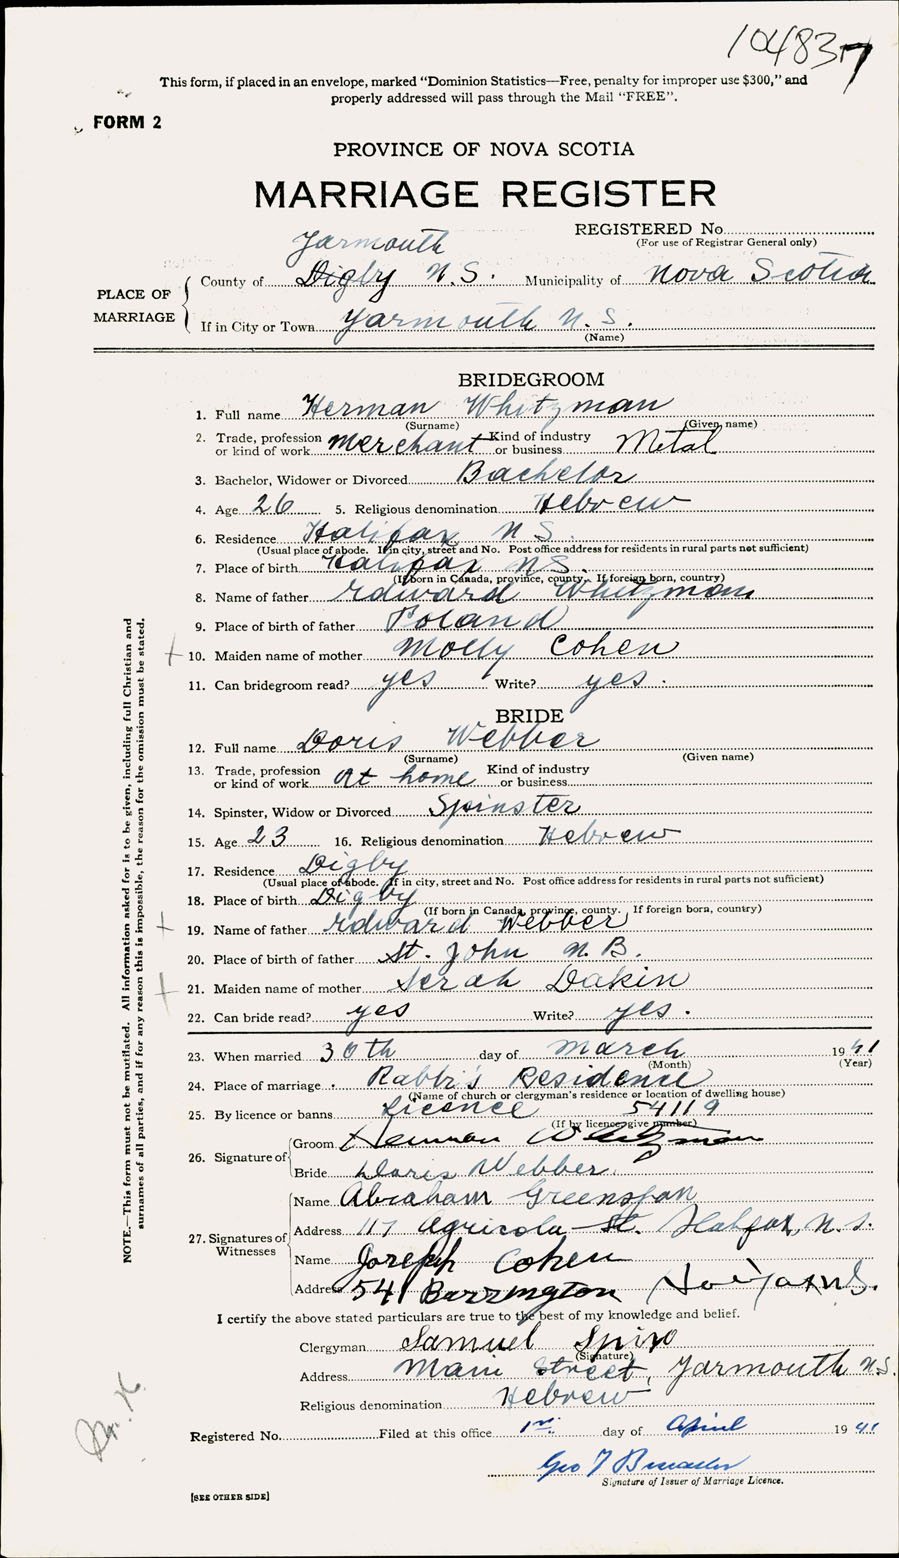 104837
This form, if placed in an envelope, marked "Dominion Statistics—Free, penalty for improper use $300," and
properly addressed will pass through the Mail "FREE".
FORM 2
PROVINCE OF NOVA SCOTIA
MARRIAGE REGISTER
REGISTERED No.
(For use of Registrar General only)
Yarmouth
PLACE OF MARRIAGE
County of Digby N.S. Municipality of Nova Scotia
If in City or Town Yarmouth N.S.
(Name)
BRIDEGROOM
1. Full name Herman Whitzman
(Surname) (Given name)
2. Trade, profession or kind of work Merchant Kind of industry or business Metal
3. Bachelor, Widower or Divorced Bachelor
4. Age 26 5. Religious denomination Hebrew
6. Residence Halifax N S.
(Usual place of abode. If in city, street and No. Post office address for residents in rural parts not sufficient)
7. Place of birth Halifax N.S.
(If born in Canada, province, county. If foreign born, country)
8. Name of father Edward Whitzman
9. Place of birth of father Poland
10. Maiden name of mother Molly Cohen
11. Can bridegroom read? yes Write? yes.
BRIDE
12. Full name Doris Webber
(Surname) (Given name)
13. Trade, profession or kind of work At home Kind of industry or business
14. Spinster, Widow or Divorced Spinster
15. Age 23 16. Religious denomination Hebrew
17. Residence Digby
(Usual place of abode. If in city, street and No. Post office address for residents in rural parts not sufficient)
18. Place of birth Digby
(If born in Canada, province, county. If foreign born, country)
19. Name of father Edward Webber
20. Place of birth of father St. John N.B.
21. Maiden name of mother Serah Dakin
22. Can bride read? yes Write? yes.
23. When married 30th day of March 1941
(Month) (Year)
24. Place of marriage Rabbi's Residence
(Name of church or clergyman's residence or location of dwelling house)
25. By licence or banns Licence 54119
(If by licence give number)
26. Signature of Groom Herman Whitzman
Bride Doris Webber.
27. Signatures of Witnesses
Name Abraham Greenspan
Address 117 Agricola St. Halifax, N.S.
Name Joseph Cohen
Address 541 Barrington
I certify the above stated particulars are true to the best of my knowledge and belief.
Clergyman Samuel Spiro
(Signature)
Address Main Street, Yarmouth N.S.
Religious denomination Hebrew
Registered No. Filed at this office 1st day of April 1941
Geo
Signature of Issuer of Marriage Licence.
[SEE OTHER SIDE]
NOTE.—This form must not be mutilated. All information asked for is to be given, including full Christian and
surnames of all parties, and if for any reason this is impossible, the reason for the omission must be stated.